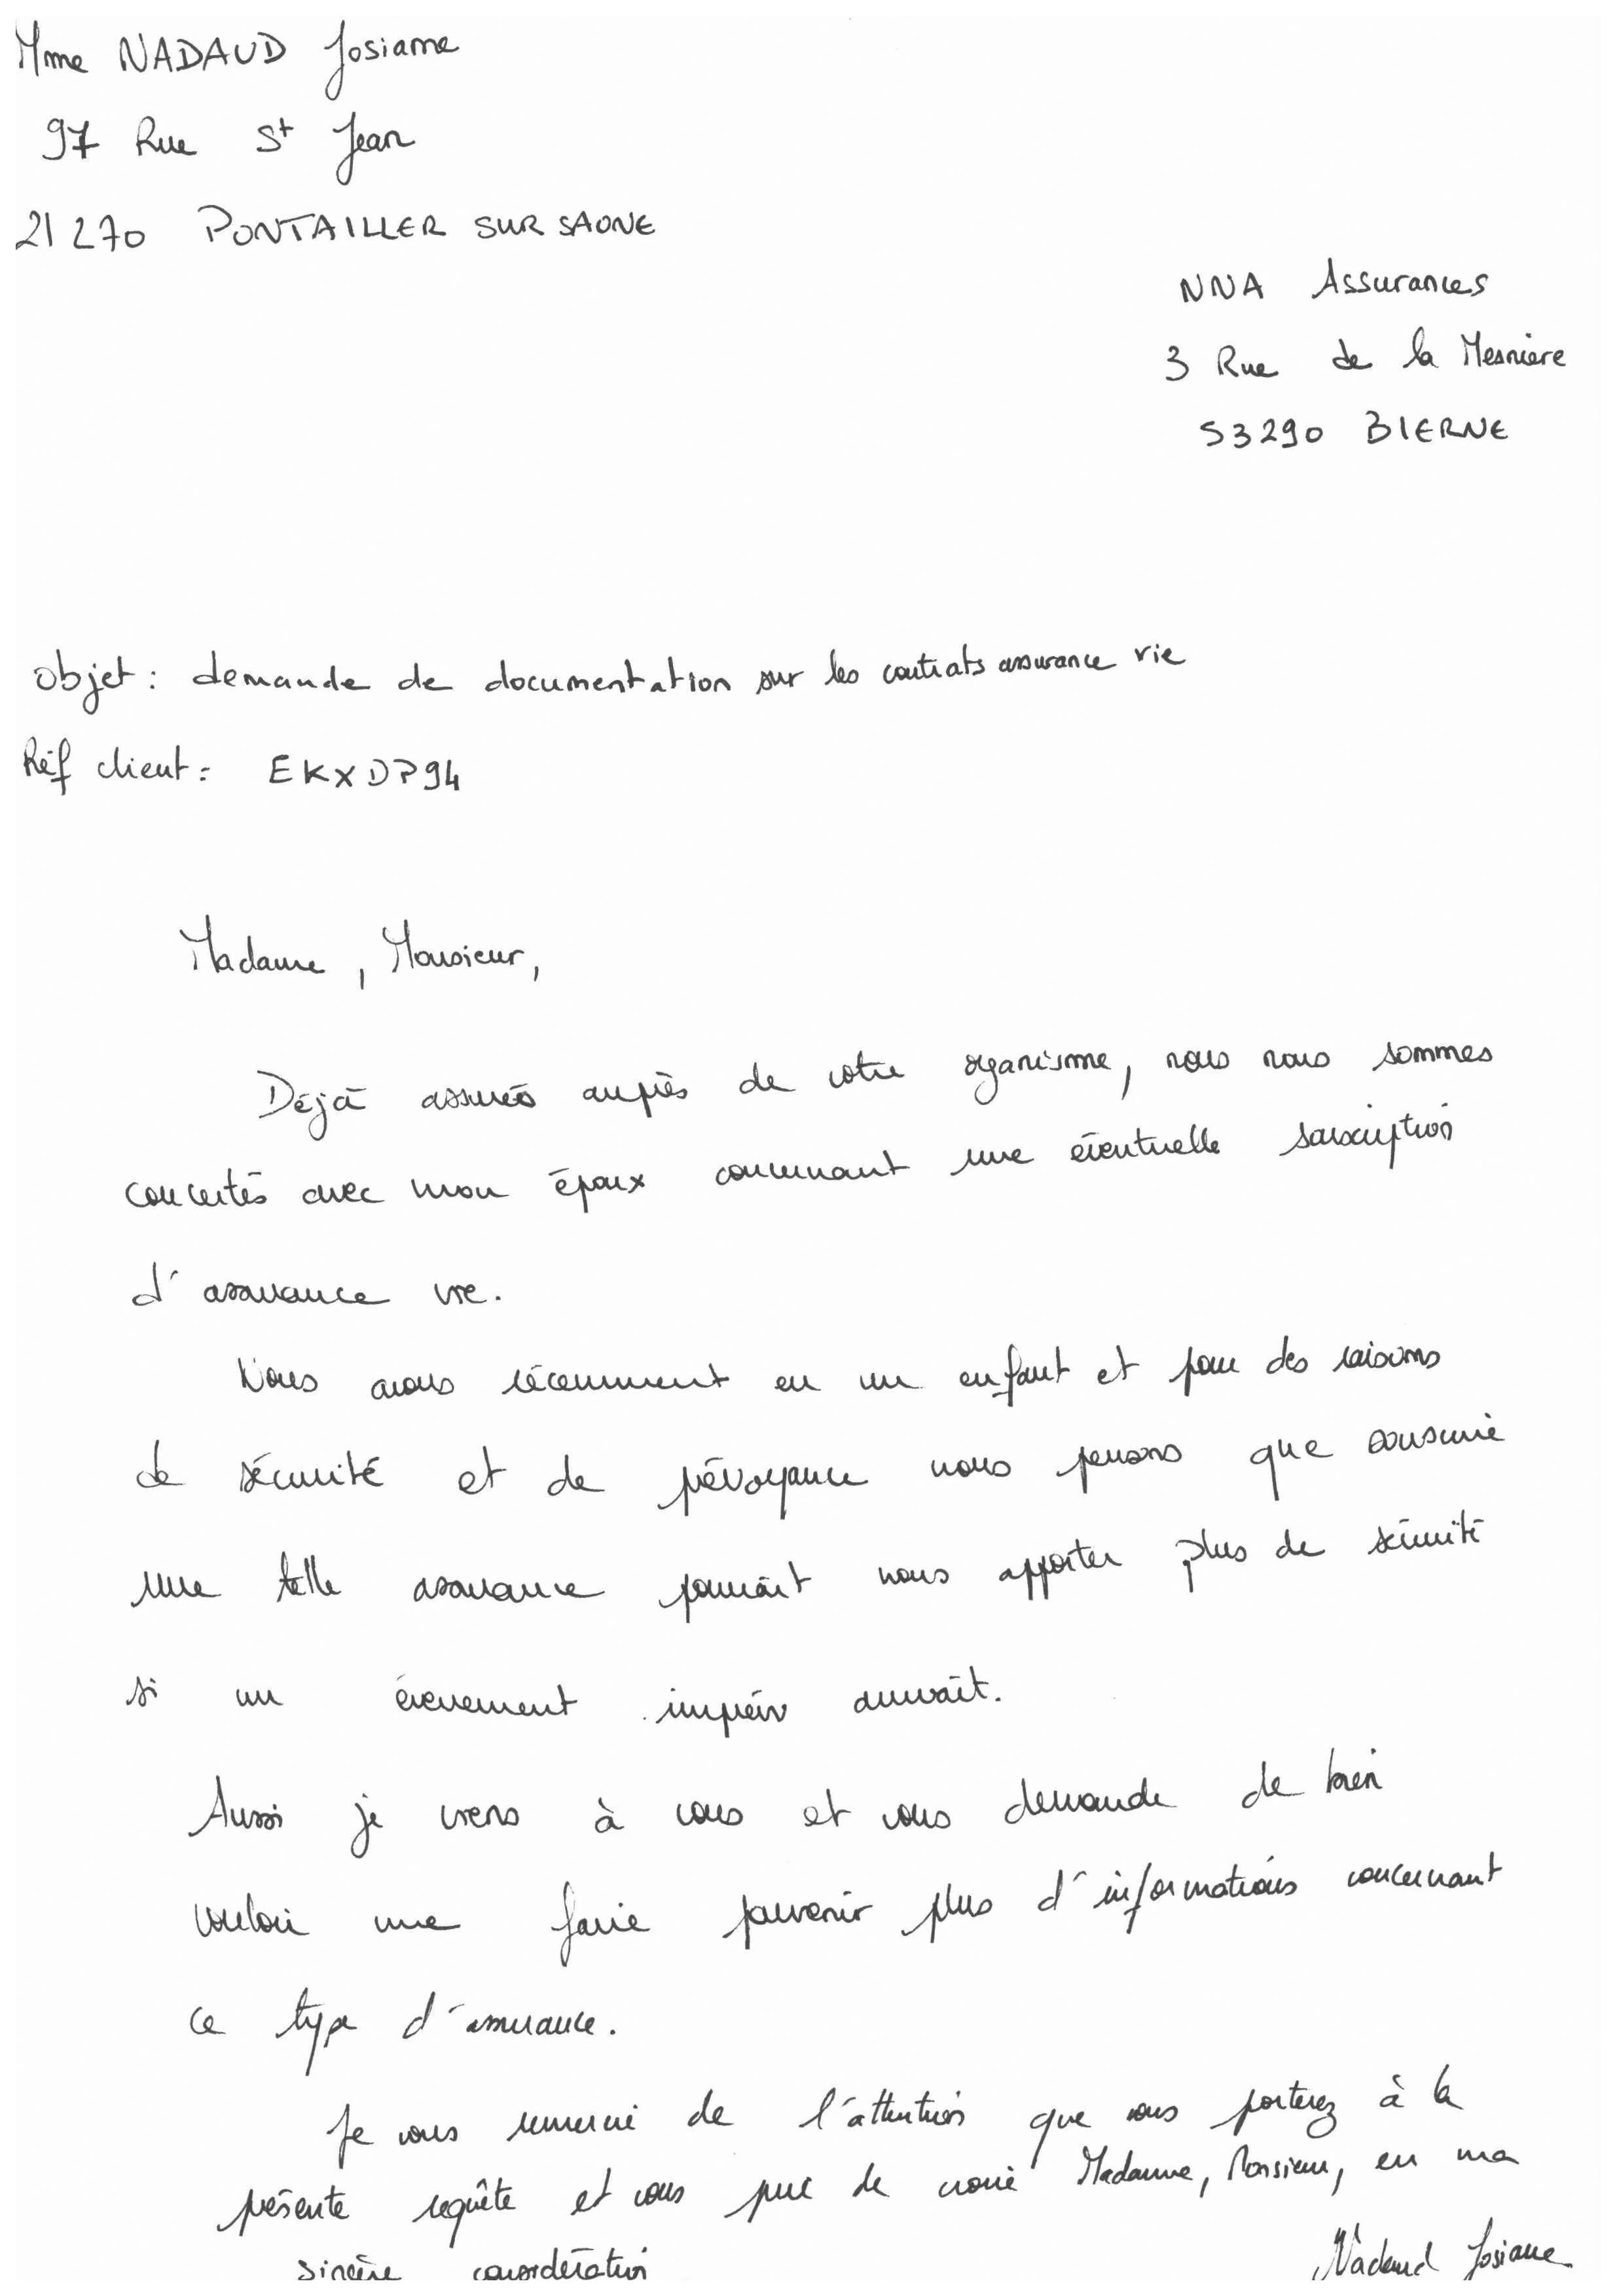 Mme NADAUD Josiane
97 Rue St Jean
21270 PONTAILLER SUR SAONE
NNA Assurances
3 Rue de la Mesniere
53290 BIERNE
Objet : demande de documentation sur les contrats assurance vie
Réf client : EKXDP94
Madame, Monsieur,
Déjà assurés auprès de votre organisme, nous nous sommes
concertés avec mon époux concernant une éventuelle souscription
d'assurance vie.
Nous avons récemment eu un enfant et pour des raisons
de sécurité et de prévoyance nous pensons que souscrire
une telle assurance pourrait nous apporter plus de sécurité
si un évenement imprévu arrivait.
Aussi je viens à vous et vous demande de bien
vouloir me faire parvenir plus d'informations concernant
ce type d'assurance.
Je vous remercie de l'attention que vous porterez à la
présente requête et vous prie de croire Madame, Monsieur, en ma
sincère considération
Nadaud Josiane